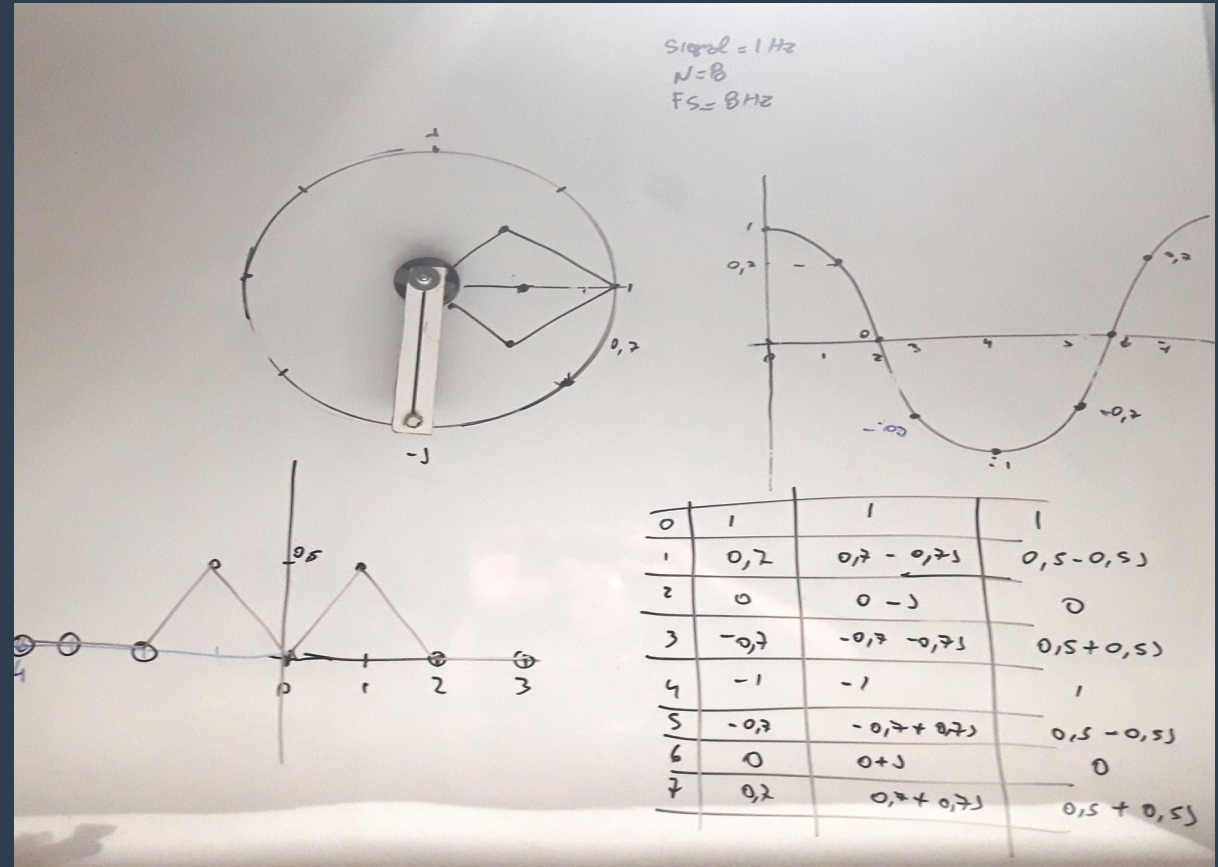 Signal = 1 Hz
N=8
FS= 8HZ
J
1
0,7
-J
1
0,7
0
0
1
2
3
4
5
6
7
-0,7
-1
-0,7
0,7
0,5
4
0
1
2
3
0 1 1 1
1 0,7 0,7 - 0,7J 0,5-0,5J
2 0 0-J 0
3 -0,7 -0,7 -0,7J 0,5+0,5J
4 -1 -1 1
5 -0,7 -0,7+0,7J 0,5-0,5J
6 0 0+J 0
7 0,7 0,7+0,7J 0,5+0,5J